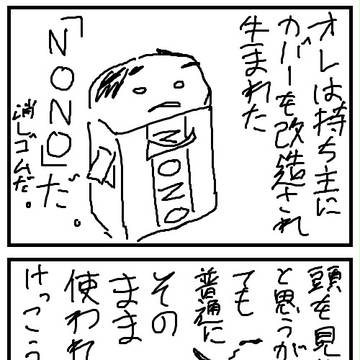 オレは持ち主に
カバーを改造され
生まれた
NONO
「NONO」だ。
消しゴムだ。
頭を見
と思うが
ても
普通に
その
まま
使われ
けっこう